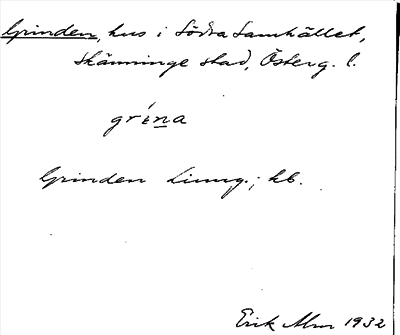 Grinden, hus i Södra Samhället,
Skänninge stad, Österg. l.
gri̍na
Grinden Liung.; kb.
Erik Alm 1932